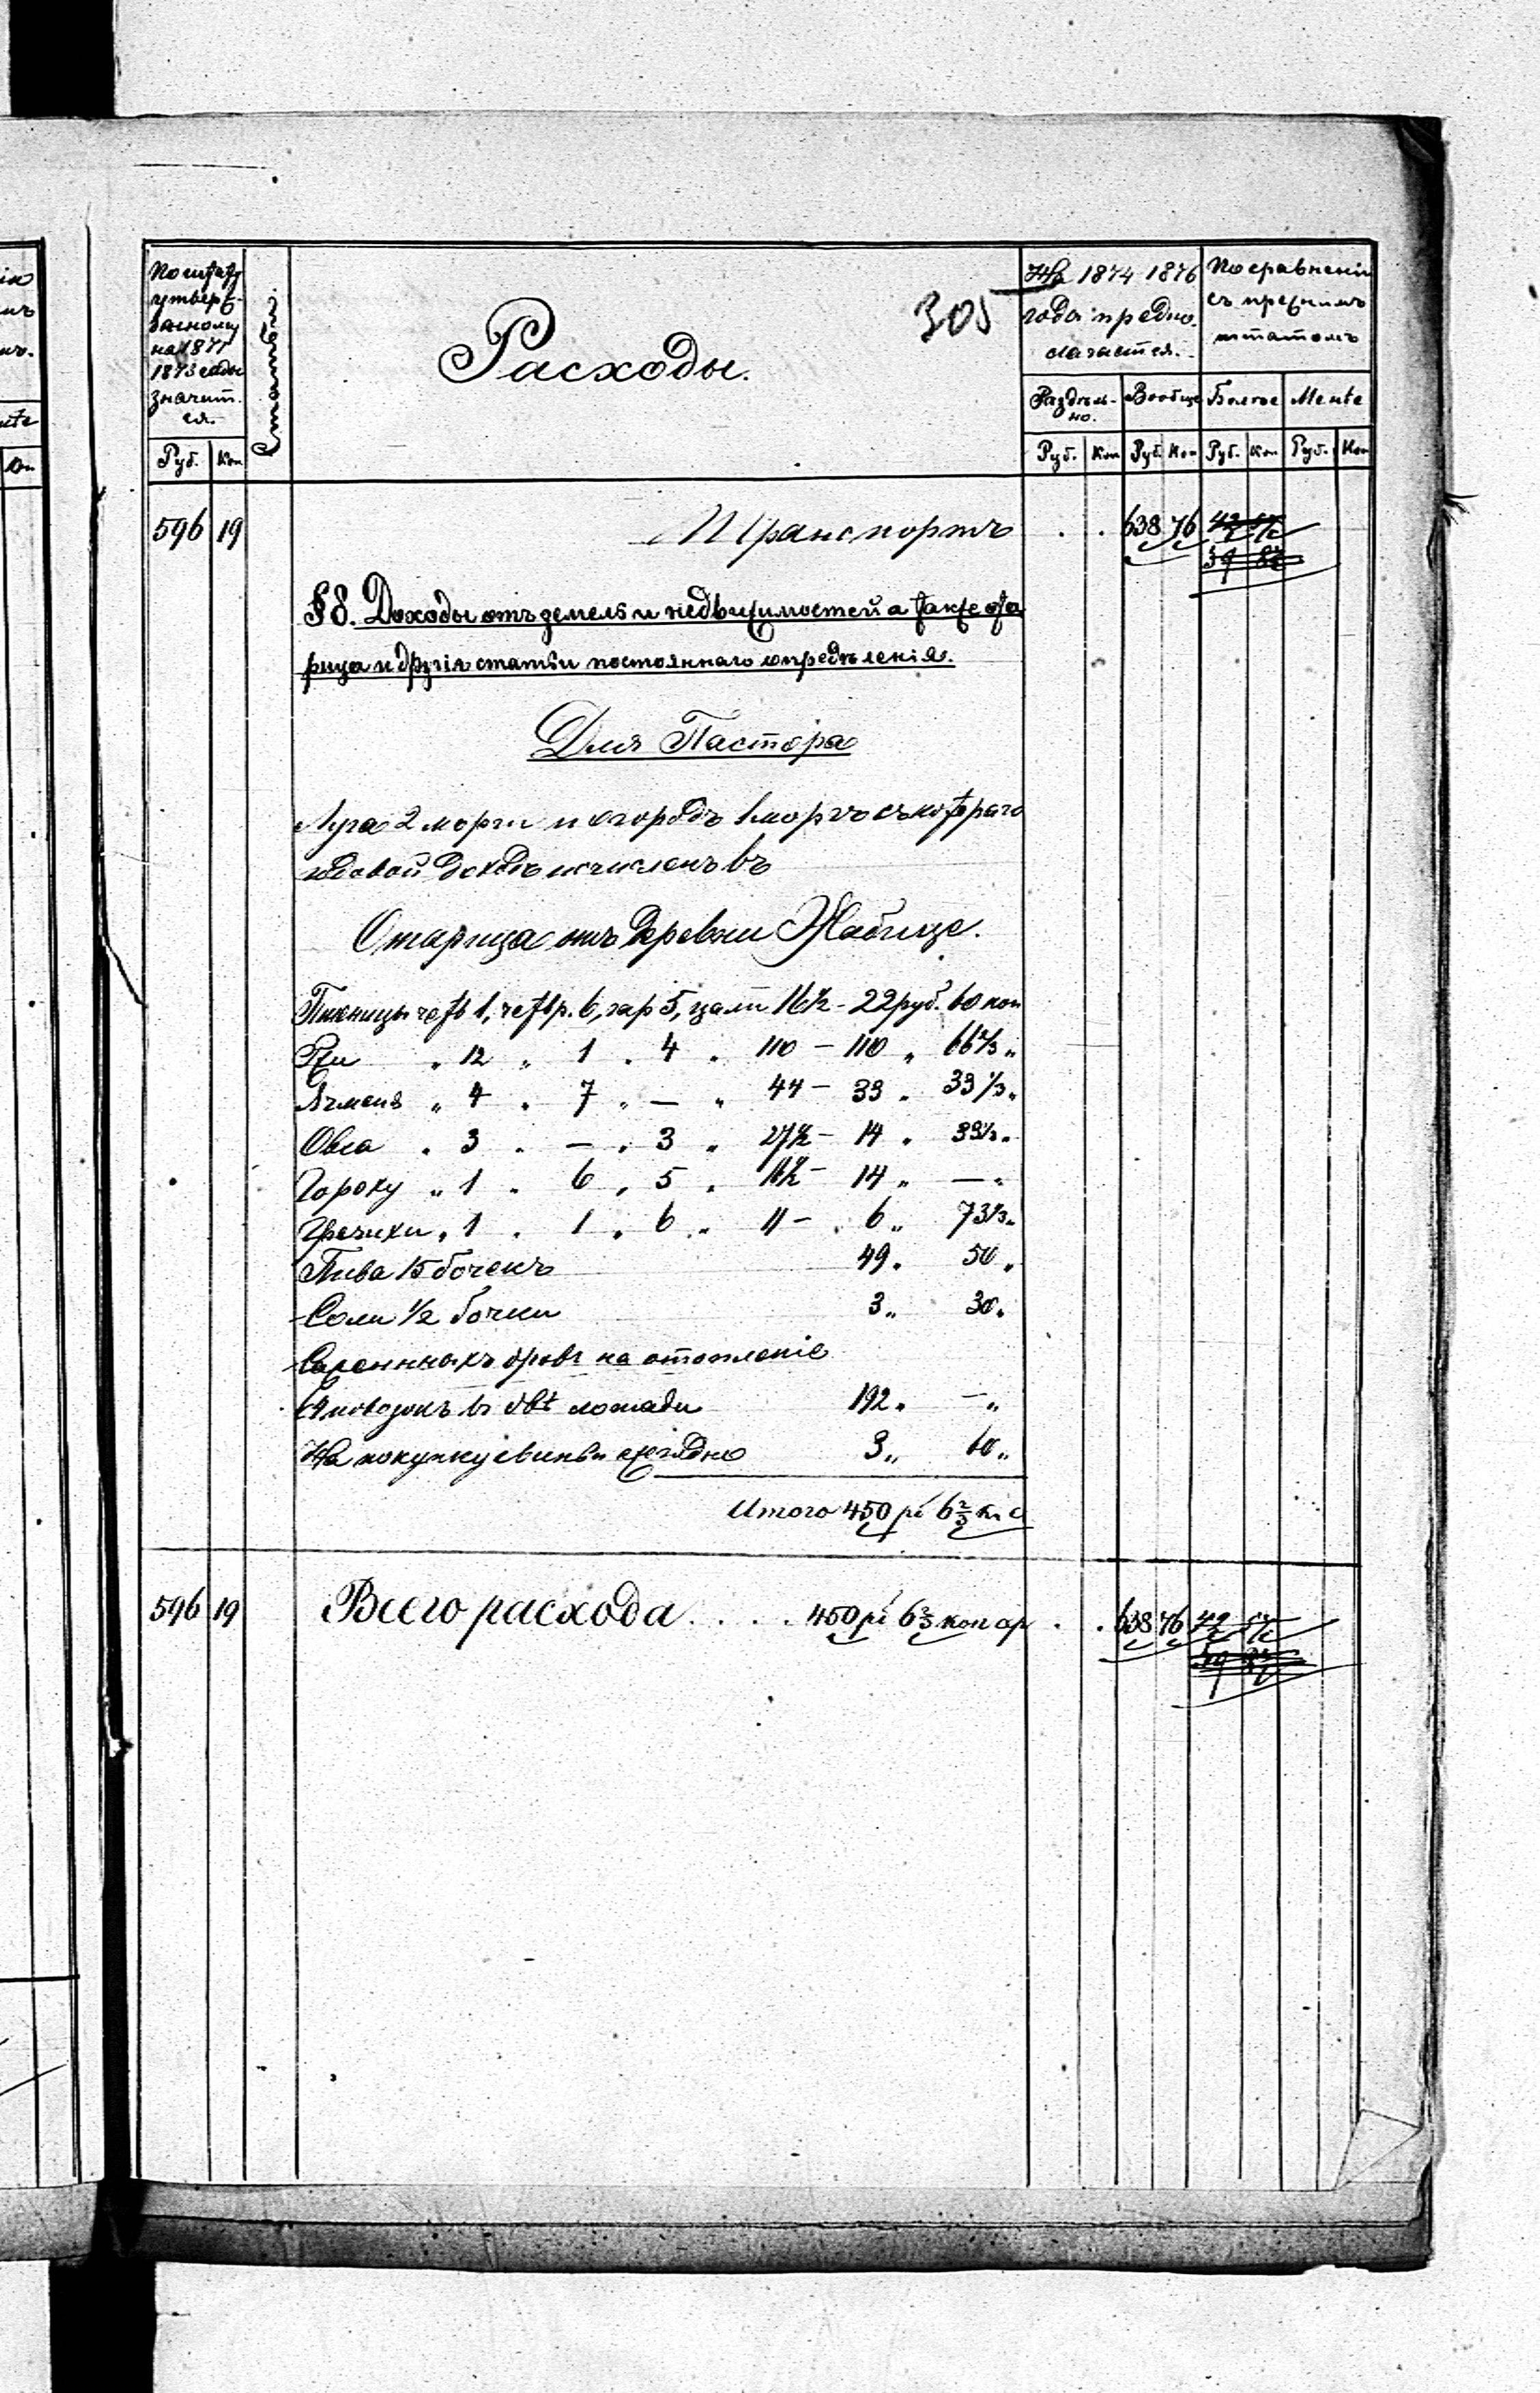 305
По штату
утверж-
денному
на 1871
1873 годы
значит-
ся.
Статьи.
Расходы.
На 1874 1876
года предпо-
лагается.
По сравненію
съ прежнимъ
штатомъ
Раздѣль-
но.
Вообще
Болѣе
Менѣе
Руб. Коп Руб. Коп Руб. Коп Руб. Коп Руб. Коп
596 19 Транспортъ . . 638 76
§ 8. Доходы отъ земель и недвижимостей а также ота
рица и другія статьи постояннаго опредѣленія.
Для Пастора
Луга 2 морги и огородъ 1 моргъ съ котораго
годовой доходъ исчисленъ въ
Отарица отъ деревни
Пшеницы четв 1, четвр. 6, гар 5, цали 16½ - 22 руб. 60 коп
Ржи " 12 " 1 " 4 " 110 - 110 " 66⅔ "
Ячменя " 4 " 7 " — " 44 - 33 " 33⅓ "
Овса " 3 " — " 3 " 27½ - 14 " 33⅓ "
Гороху " 1 " 6 " 5 " 16½ - 14 " — "
Гречихи " 1 " 1 " 6 " 11 - 6 " 73⅓ "
Пива 15 бочекъ 49 " 50 "
Соли ½ бочки 3 " 30 "
Саженныхъ дровъ на отопленіе
повозокъ въ двѣ лошади 192 " — "
На покупку свиньи ежегодно 3 " 60 "
Итого 450 р 6⅔ к. с
596 19 Всего расхода . . . . 450 р 6⅔ коп ср . . 638 76 42 57